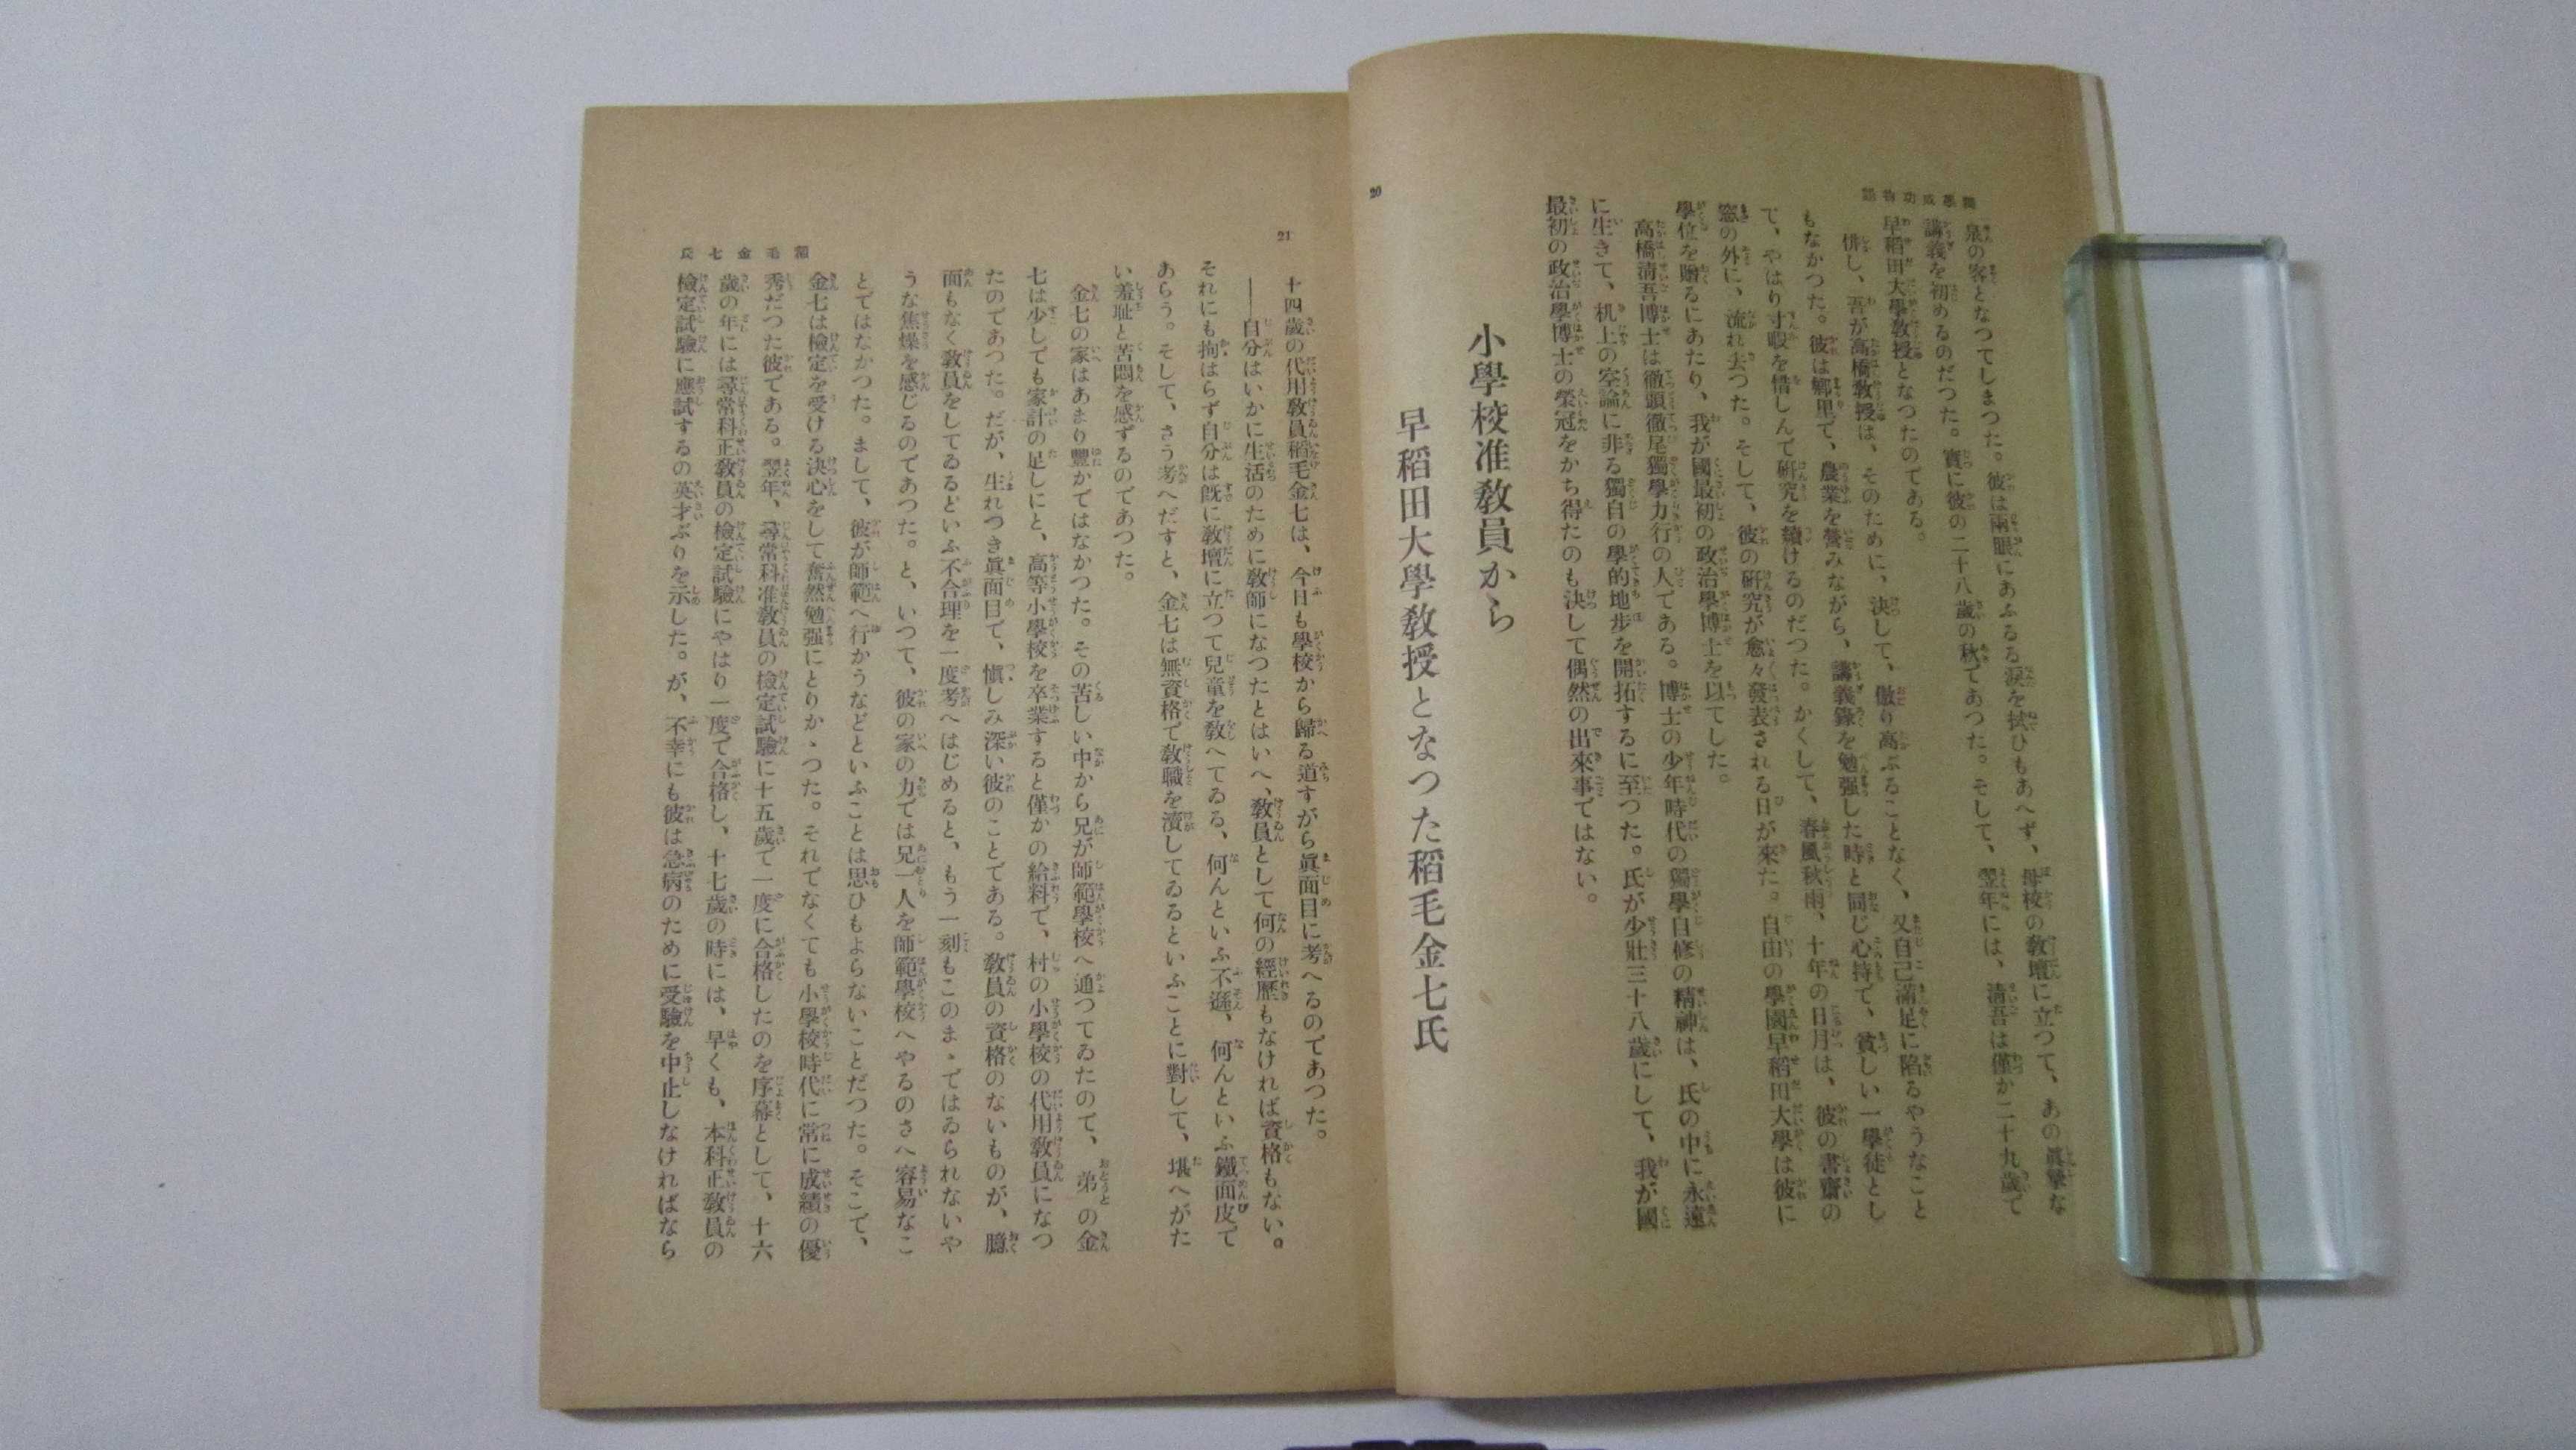 獨學成功物語
泉の客となつてしまつた。彼は兩眼にあふるる淚を拭ひもあへず、母校の敎壇に立つて、あの眞摯な
講義を初めるのだつた。實に彼の二十八歲の秋であつた。そして、翌年には、淸吾は僅か二十九歲で
早稻田大學敎授となつたのである。
併し、吾が高橋敎授は、そのために、決して、傲り高ぶることなく、又自己滿足に陷るやうなこと
もなかつた。彼は鄕里で、農業を營みながら、講義錄を勉强した時と同じ心持で、貧しい一學徒とし
て、やはり寸暇を惜しんで硏究を續けるのだつた。かくして、春風秋雨、十年の日月は、彼の書齋の
窓の外に、流れ去つた。そして、彼の硏究が愈々發表される日が來た。自由の學園早稻田大學は彼に
學位を贈るにあたり、我が國最初の政治學博士を以てした。
高橋淸吾博士は徹頭徹尾獨學力行の人である。博士の少年時代の獨學自修の精神は、氏の中に永遠
に生きて、机上の空論に非る獨自の學的地步を開拓するに至つた。氏が少壯三十八歲にして、我が國
最初の政治學博士の榮冠をかち得たのも決して偶然の出來事ではない。
小學校准敎員から
早稻田大學敎授となつた稻毛金七氏
20
21
十四歲の代用敎員稻毛金七は、今日も學校から歸る道すがら眞面目に考へるのであつた。
――自分はいかに生活のために敎師になつたとはいへ、敎員として何の經歷もなければ資格もない。
それにも拘はらず自分は旣に敎壇に立つて兒童を敎へてゐる、何んといふ不遜、何んといふ鐵面皮で
あらう。そして、さう考へだすと、金七は無資格で敎職を瀆してゐるといふことに對して、堪へがた
い羞恥と苦悶を感ずるのであつた。
金七の家はあまり豐かではなかつた。その苦しい中から兄が師範學校へ通つてゐたので、弟の金
七は少しでも家計の足しにと、高等小學校を卒業すると僅かの給料で、村の小學校の代用敎員になつ
たのであつた。だが、生れつき眞面目で、愼しみ深い彼のことである。敎員の資格のないものが、臆
面もなく敎員をしてゐるどいふ不合理を一度考へはじめると、もう一刻もこのまゝではゐられないや
うな焦燥を感じるのであつた。と、いつて、彼の家の力では兄一人を師範學校へやるのさへ容易なこ
とではなかつた。まして、彼が師範へ行かうなどといふことは思ひもよらないことだつた。そこで、
金七は檢定を受ける決心をして奮然勉强にとりかゝつた。それでなくても小學校時代に常に成績の優
秀だつた彼である。翌年、尋常科准敎員の檢定試驗に十五歲で一度に合格したのを序幕として、十六
歲の年には尋常科正敎員の檢定試驗にやはり一度で合格し、十七歲の時には、早くも、本科正敎員の
檢定試驗に應試するの英才ぶりを示した。が、不幸にも彼は急病のために受驗を中止しなければなら
稻毛金七氏